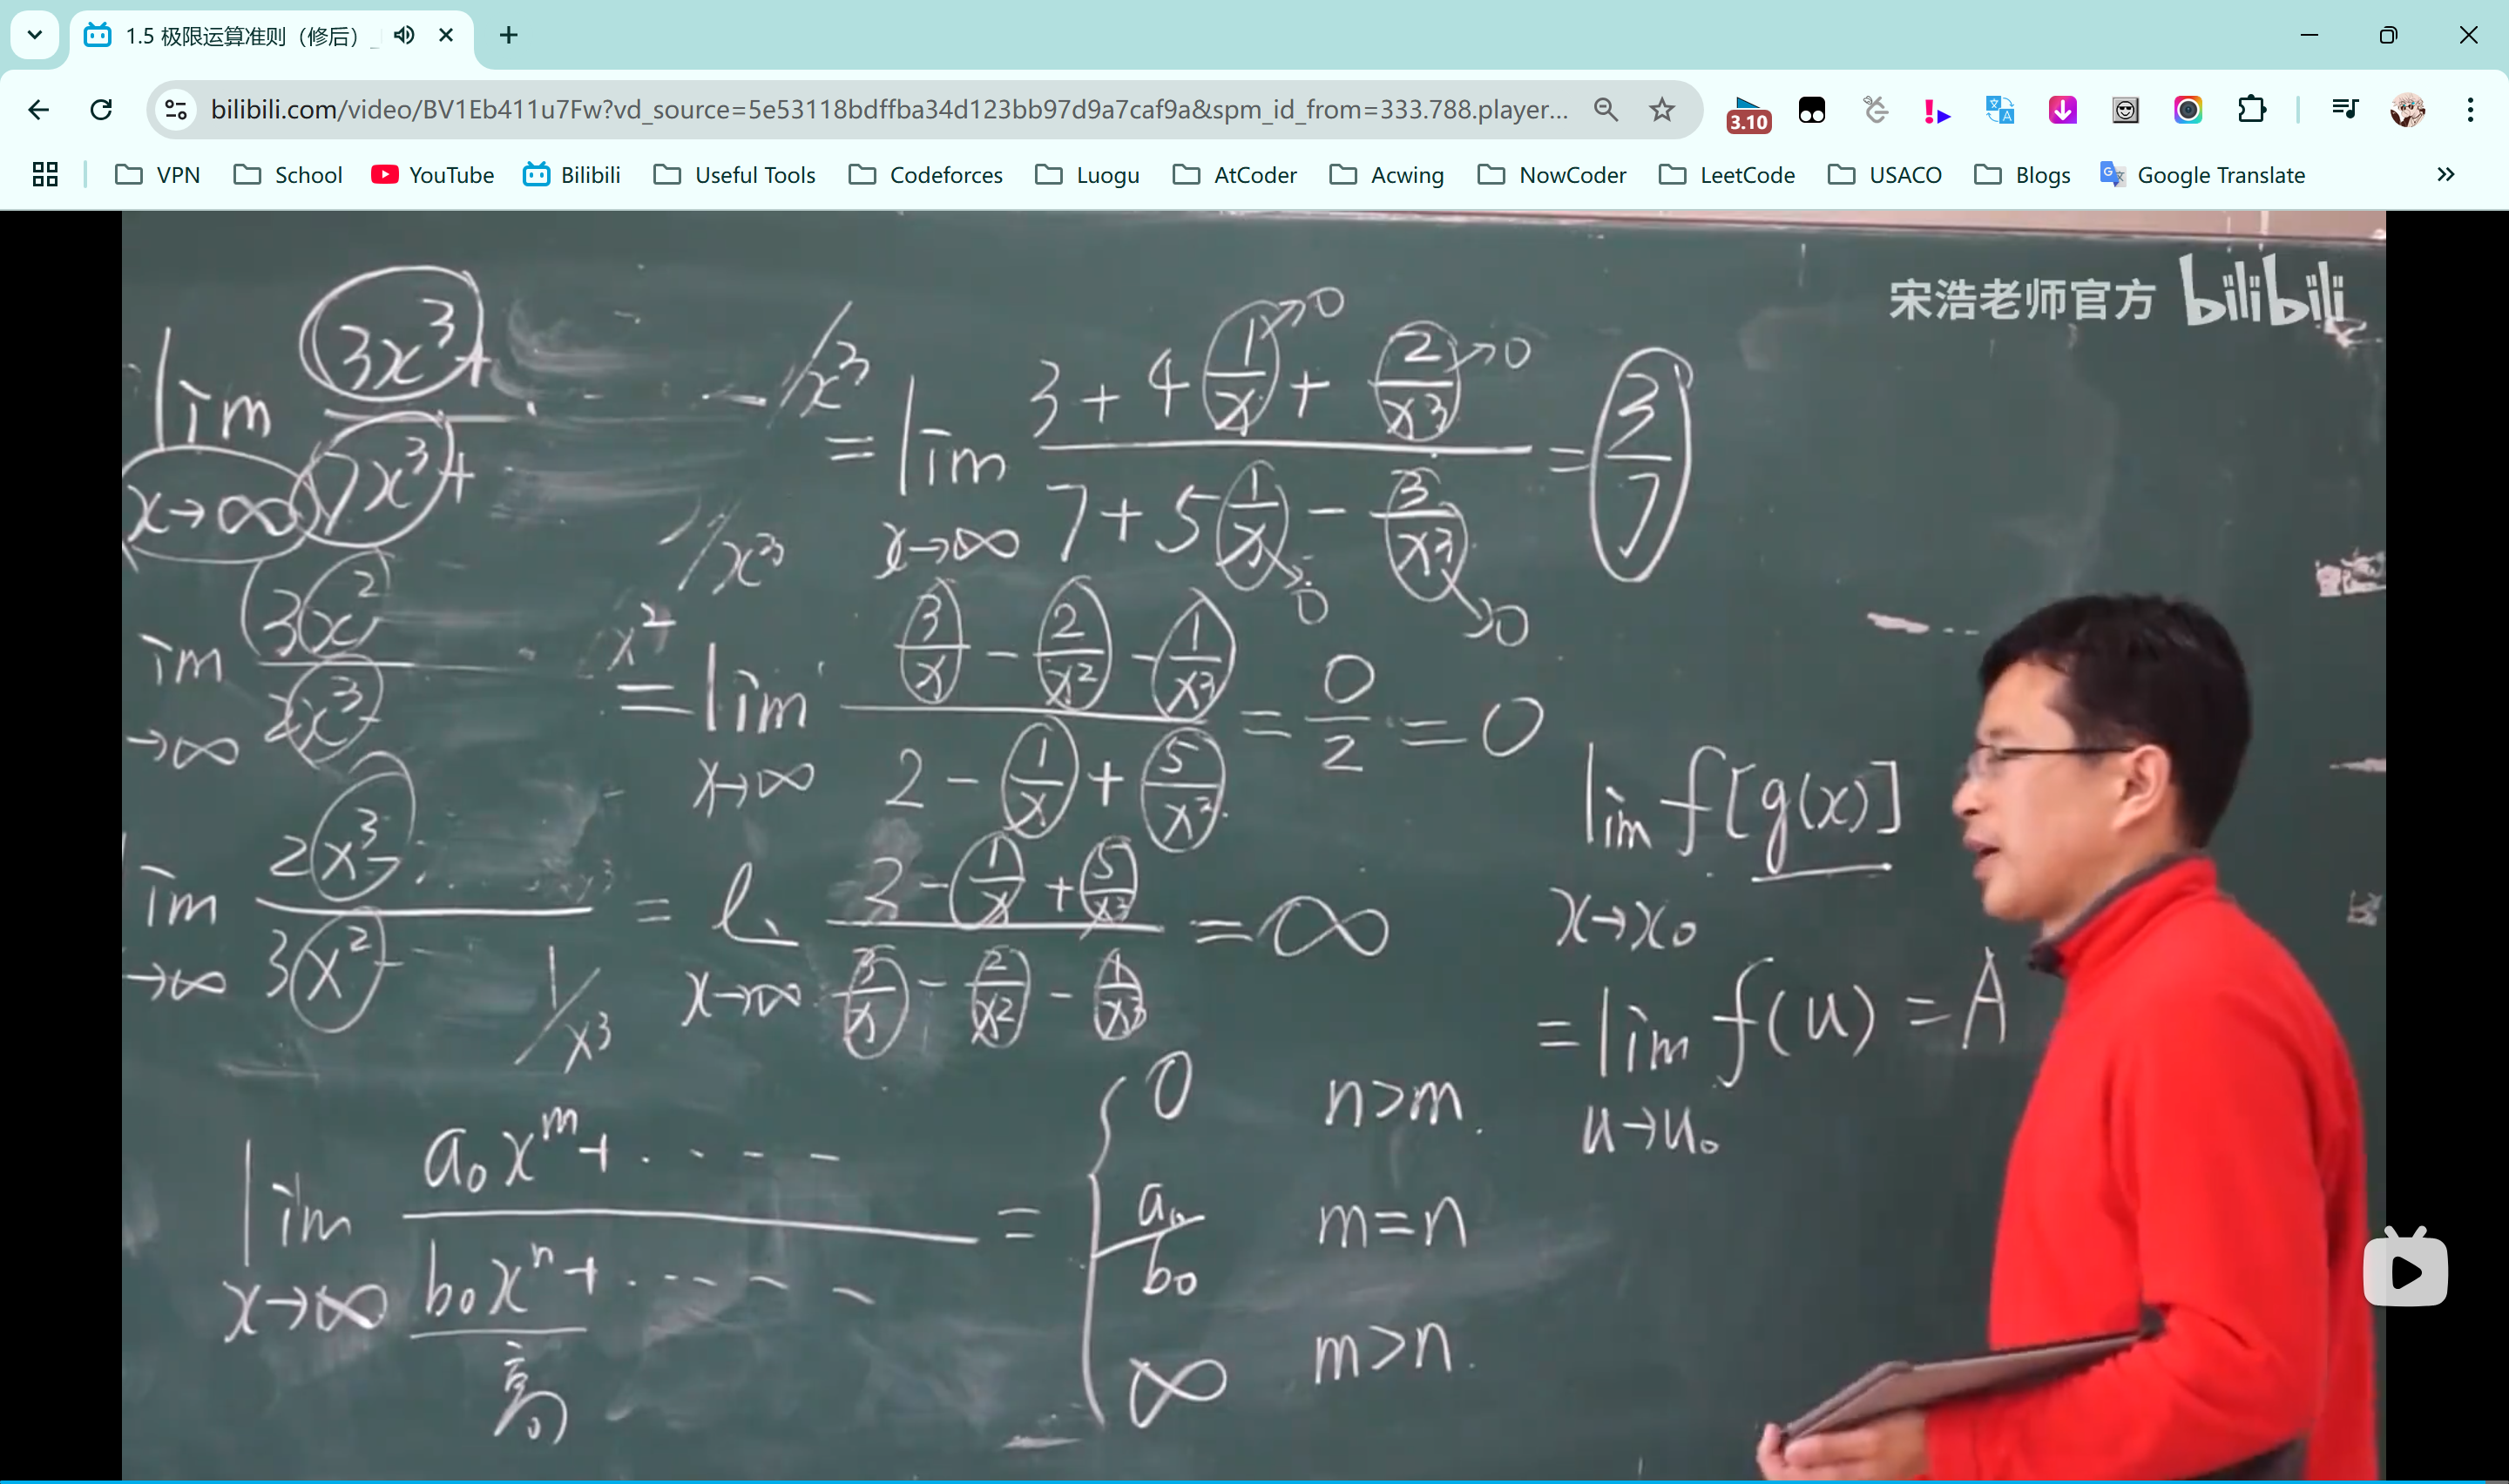 1.5 极限运算准则（修后）_
bilibili.com/video/BV1Eb411u7Fw?vd_source=5e53118bdffba34d123bb97d9a7caf9a&spm_id_from=333.788.player...
3.10
VPN School YouTube Bilibili Useful Tools Codeforces Luogu AtCoder Acwing NowCoder LeetCode USACO Blogs Google Translate
宋浩老师官方 bilibili
lim x→∞ 3x³+ / 7x³+ /x³ /x³ = lim x→∞ (3 + 4 1/x + 2/x³) / (7 + 5 1/x - 3/x³) = 3/7
→0 →0 →0 →0
im →∞ 3x² / 2x³ x² = lim x→∞ (3/x - 2/x² - 1/x³) / (2 - 1/x + 5/x³) = 0/2 = 0
im →∞ 2x³ / 3x² - 1/x³ = l x→∞ (2 - 1/x + 5/x³) / (3/x - 2/x² - 1/x³) = ∞
lim x→x₀ f[g(x)]
= lim u→u₀ f(u) = A
lim x→∞ a₀xᵐ+ · · - - / b₀xⁿ+ · - - - - = { 0 n>m.
a₀/b₀ m=n
∞ m>n.
高